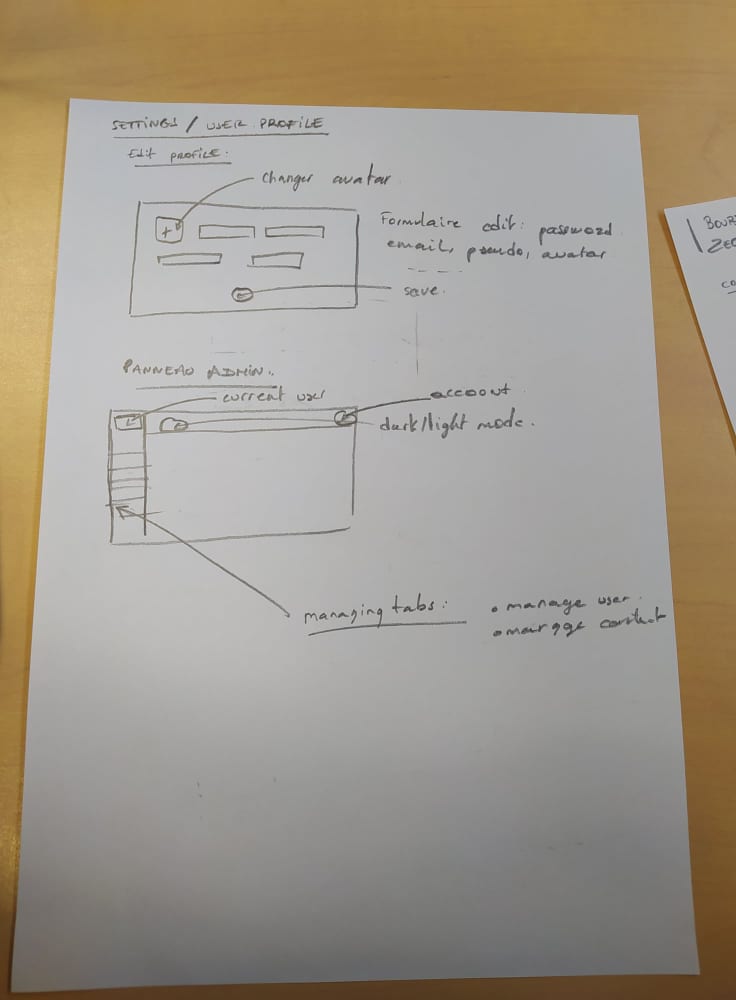 SETTINGS / USER PROFILE
Edit PROFILE.
changer avatar
Formulaire edit: password
email, pseudo, avatar
save.
PANNEAU ADMIN.
current user
account
dark/light mode.
managing tabs:
• manage user.
• manage content